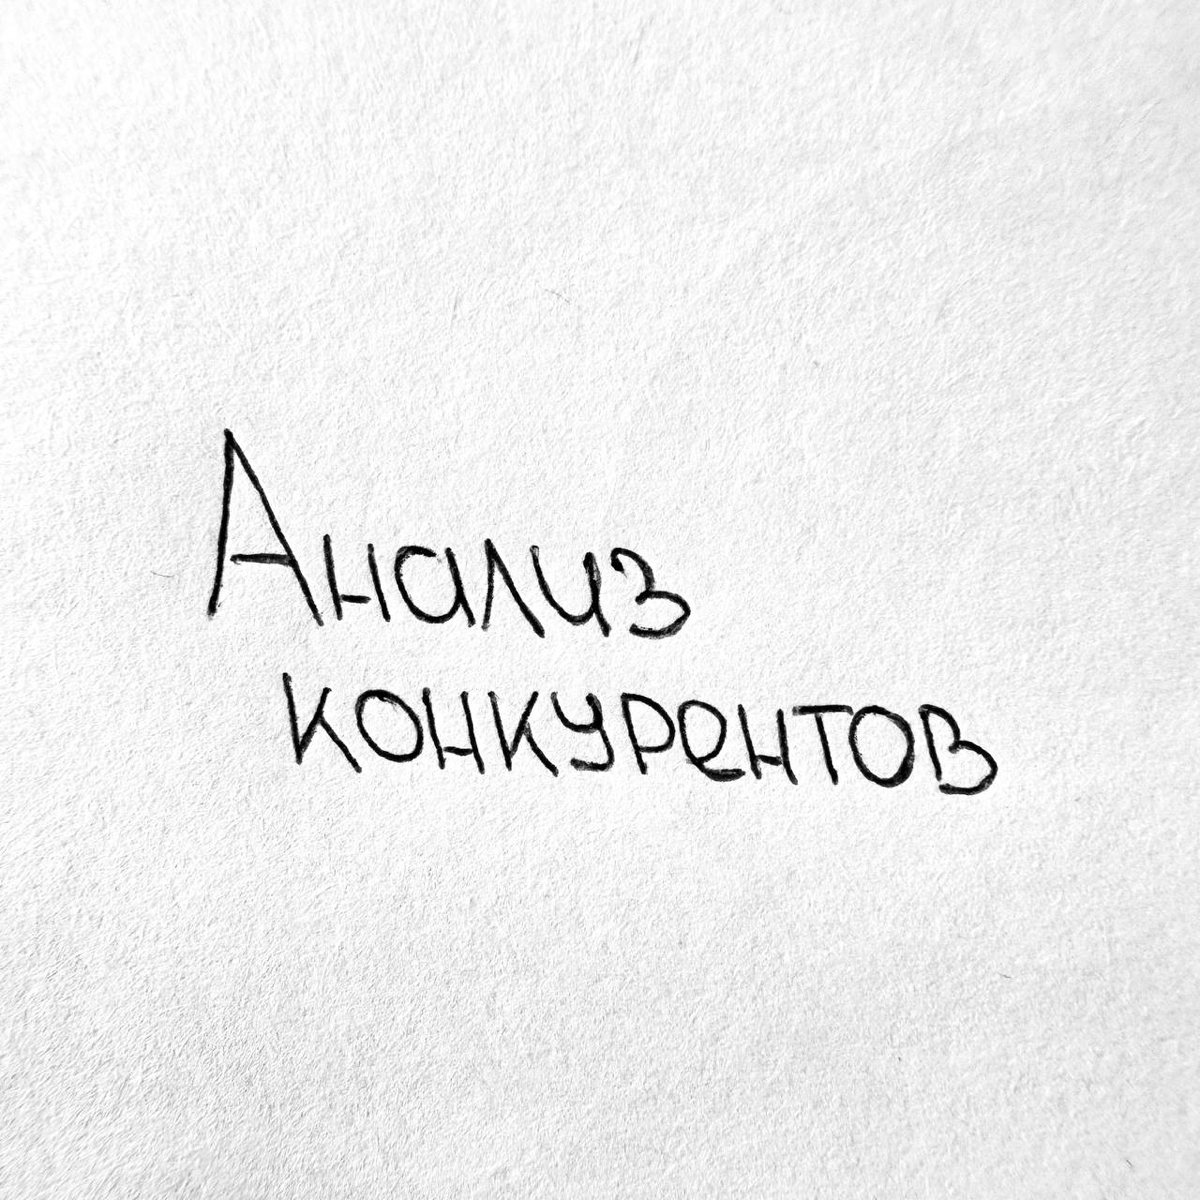 Анализ
конкурентов